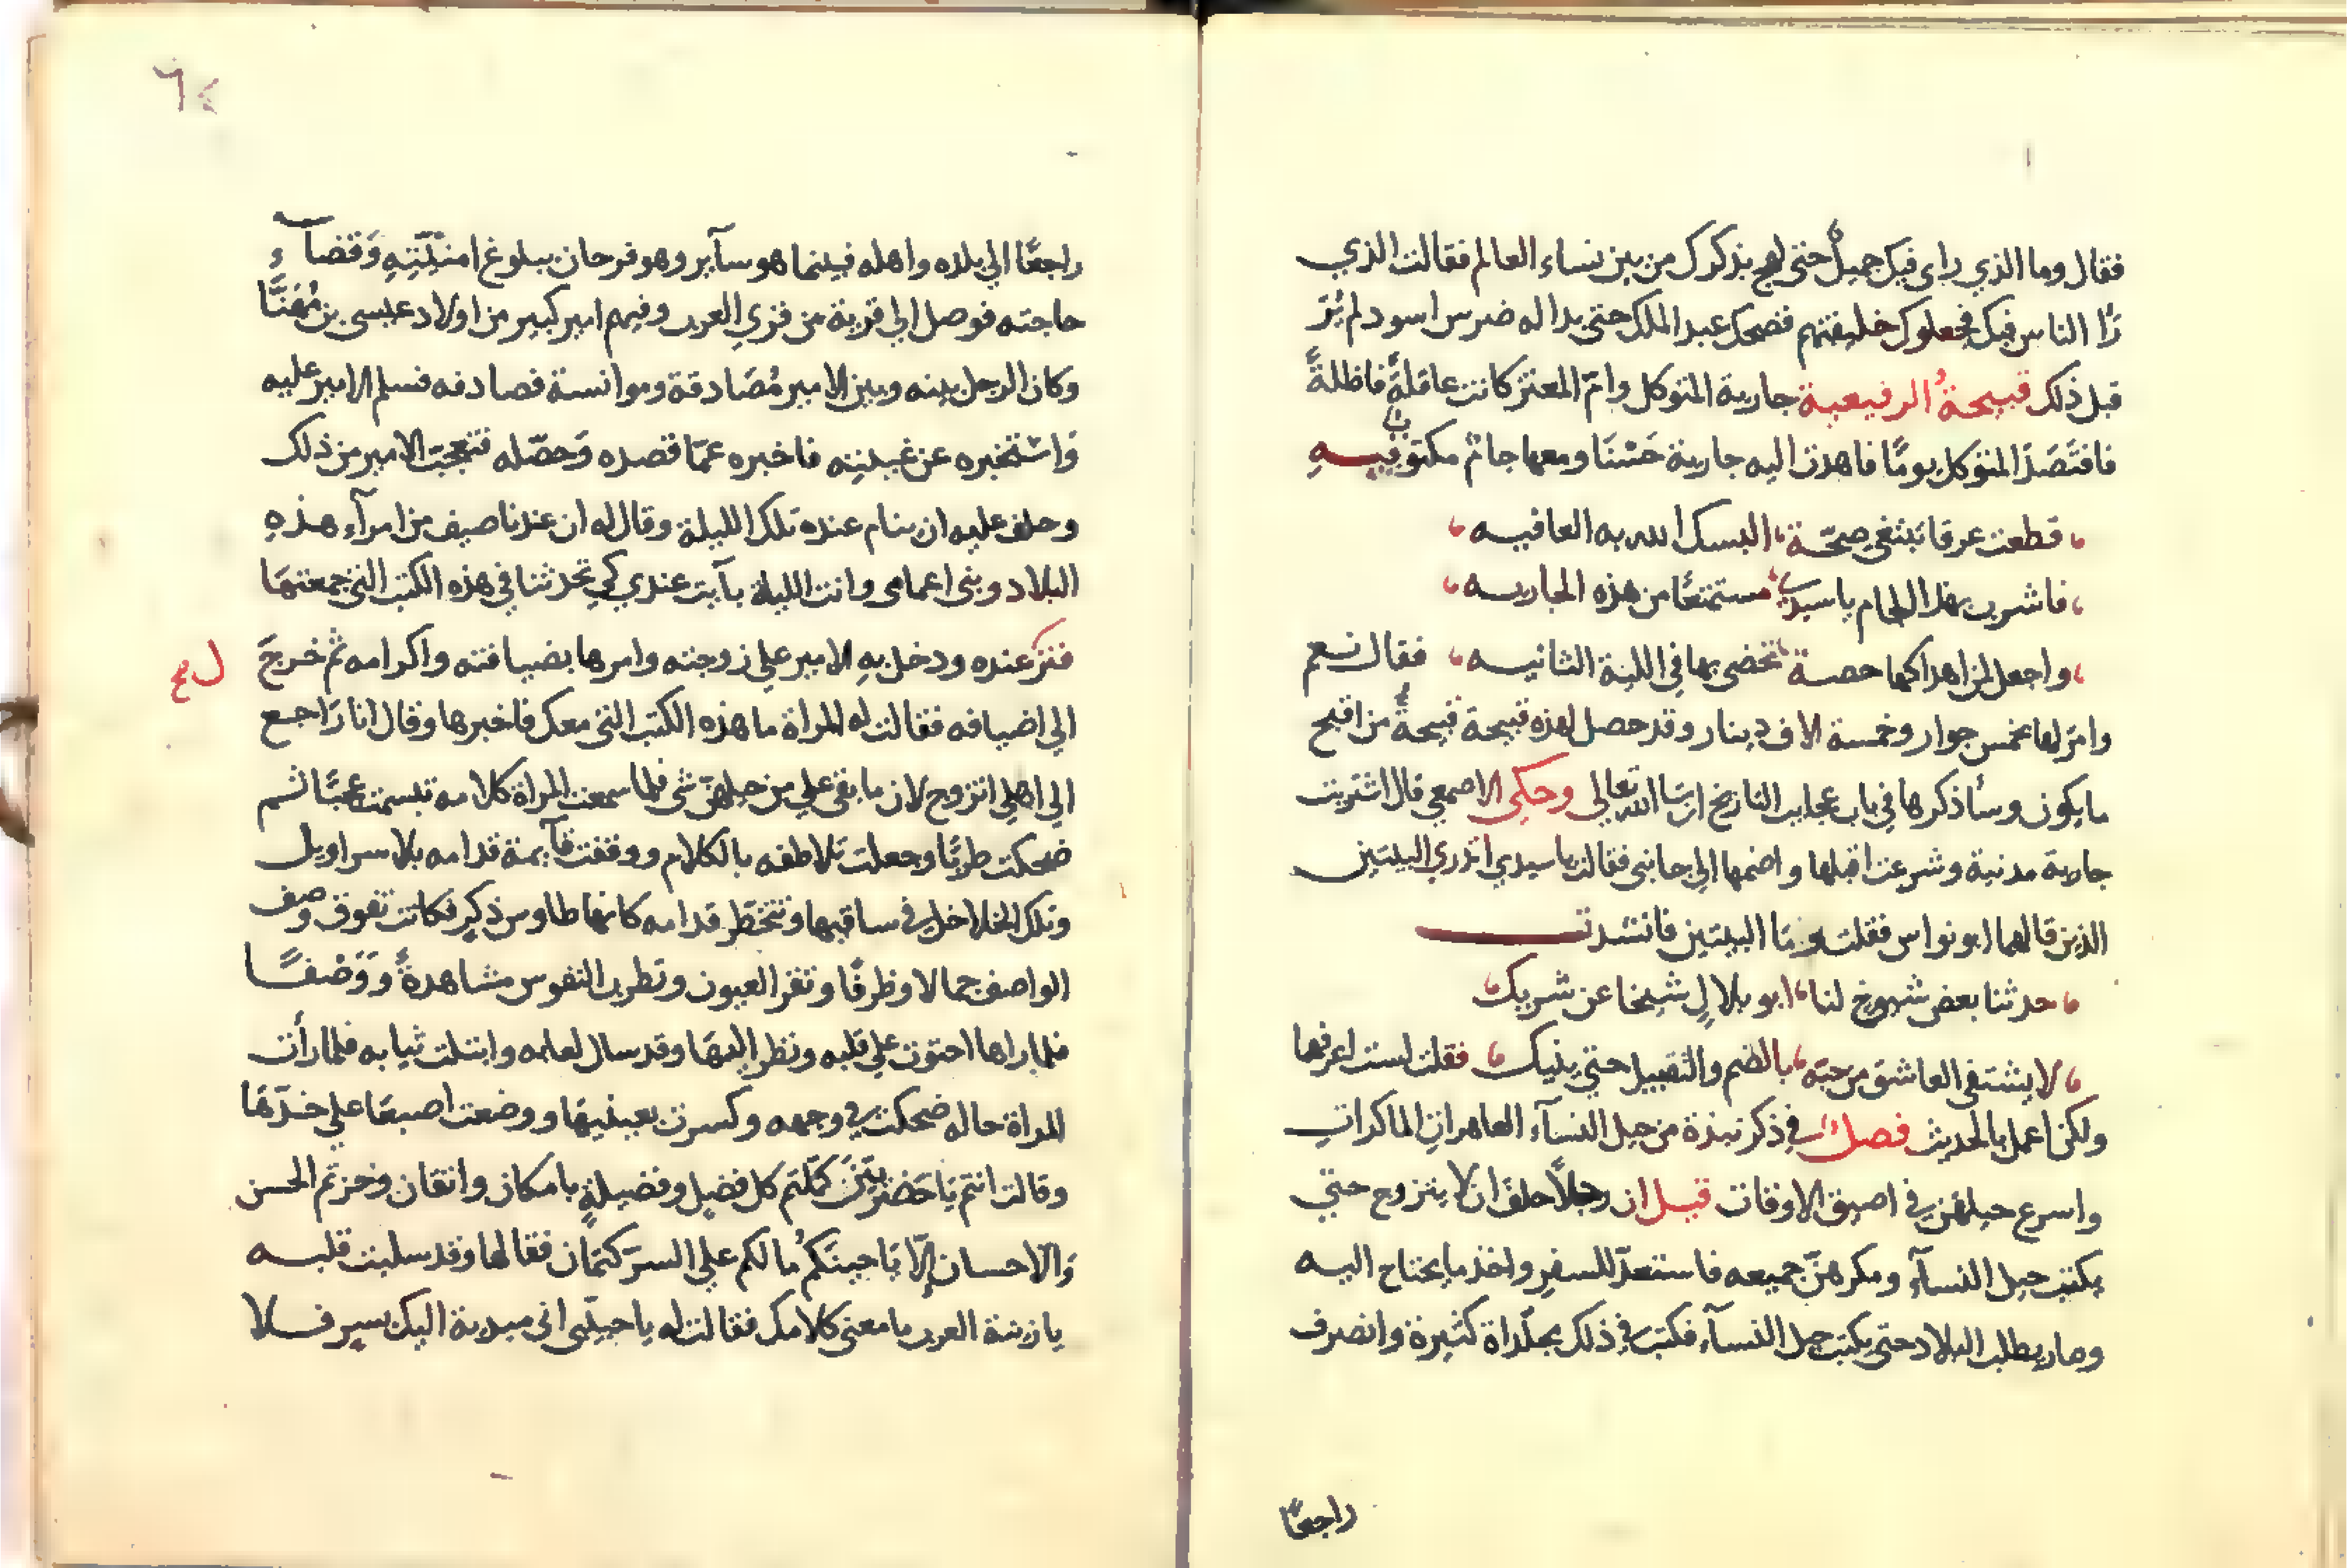 فقال وما الذي راى فيك جميلٌ حتى لهج بذكرك من بين نساء العالم فقالت الذي
رَاَ الناس فيك فجعلوك خليفتهم فضحك عبد الملك حتى بدا له ضرس اسود لم يُرَ
قبل ذلك قبيحةُ الرفيعية جارية المتوكل وامّ المعتز كانت عاقلةً فاظلةً
فافتَصَدَ المتوكل يومًا فاهدت اليه جارية حَسْنَا ومعها جامٌ مكتوب فيهِ
قطعت عرقا تبتغي صحّة البسك الله به العافيه
فاشرب بهذا الجام يا سيدي مستمتعًا من هذه الجاريه
واجعل لمن اهداكها حصة تحضى بها في الليلة الثانيه فقال نعم
وامرَ لها بخمس جوار وخمسة الاف دينار وقد حصل لهذه قبيحة قبيحةٌ من اقبح
ما يكون وسأذكرها في باب عجايب التاريخ ان شا الله تعالى وحكى الاصمعي قال اشتريت
جارية مدنية وشرعت اقبلها واضمها الي جانبي فقالت يا سيدي اتدري البيتين
الذين قالهما ابو نواس فقلت وما البيتين فانشدت
حدثنا بعض شيوخ لنا ابو بلالٍ شيخنا عن شريك
لا يشتفى العاشق من حبّه بالضم والتقبيل حتى ينيك فقلت لست اعرفها
ولكن اعمل بالحديث فصلٌ في ذكر نبذة من حيل النسآء العاهراتِ الماكراتِ
واسرع حيلهن في اضيق الاوقات قيل ان رجلاً حلف ان لا يتزوج حتي
يكتب حيل النسآء ومكرهنّ جميعه فاستعدّ للسفرِ واخذ ما يحتاج اليه
وصار يطلب البلاد حتى يكتب حيل النسآء فكتب في ذلك مجلّداة كثيرة وانصرف
راجعًا
٦٤
راجعًا الي بلده واهله فبينما هو سآير وهو فرحان ببلوغ امنيّتهِ وَقضآءِ
حاجته فوصل الي قرية من قري العرب وفيهم امير كبير من اولاد عيسى بن مُهَنَّا
وكان الرجل بينه وبين الامير مُصَادقة وموانسة فصادفه فسلم الامير عليه
وَاسْتخبره عن غيبتِه فاخبره عمّا قصده وَحصّله فتعجبَ الامير من ذلك
وحلف عليه ان ينام عنده تلك الليلة وقال له ان عندنا ضيف من امرآء هذهِ
البلاد وبنى اعمامى وانت الليلة بآيت عندي كي تحدثنا في هذه الكتب التي جمعتهَا
فنزل عنده ودخل بهِ الامير علي زوجته وامرها بضيافته واكرامه ثم خرجَ
الي اضيافه فقالت له المراة ما هذه الكتب التي معك فاخبرها وقال انا رَاجع
الي اهلي اتزوج لان ما بقى علي من حيلهنّ شى فلما سمعت المراة كلامه تبسمت عجبًا ثم
ضحكت طربًا وجعلت تلاطفه بالكلام ووقفت قآيمة قدامه بلا سراويل
وتلك الخلاخل في ساقيها وتتخطّر قدامه كانها طاوس ذكير فكانت تفوق وصف
الواصف جمالا وظرفًا وتقر العيون وتطرب النفوس مشاهدةً ووَصْفًا
فلما راها احتوت علي قلبه ونظر اليهَا وقد سال لعابه وابتلت ثيابه فلما رأت
المراة حاله ضحكت في وجهه وكسرت بعينيهَا ووضعت اصبعَا علي خدّهَا
وقالت انتم يا حَضرتين كمّلتم كل فضيل وفضيلةٍ بامكان واتقان وحزتم الحسن
وَالاحسان إلّا يَا حبينكُم مالكم علي السرّ كتمان فقال لها وقد سلبت قلبه
يا زينة العرب ما معنى كلامك فقالت له يا حبيبى انى مبدية اليك بسرٍ فلا